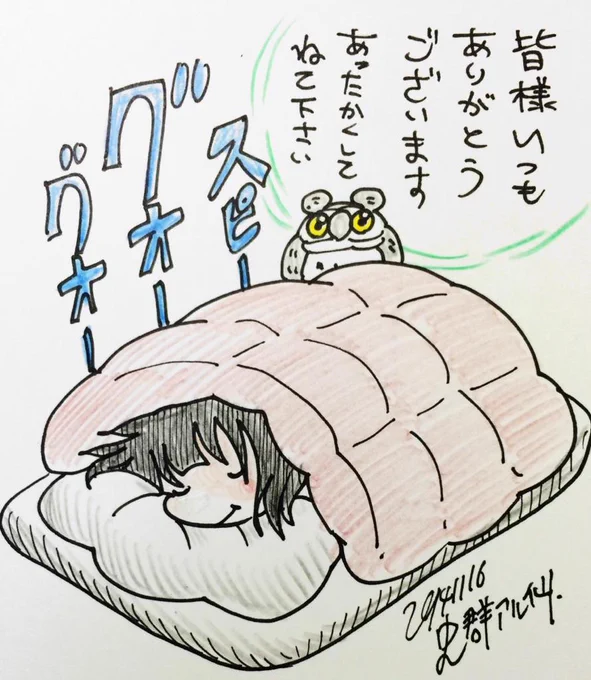 皆様いつも
ありがとう
ございます
あったかくして
ねて下さい
スピー
グオー
グオー
20141116
史群アル仙.